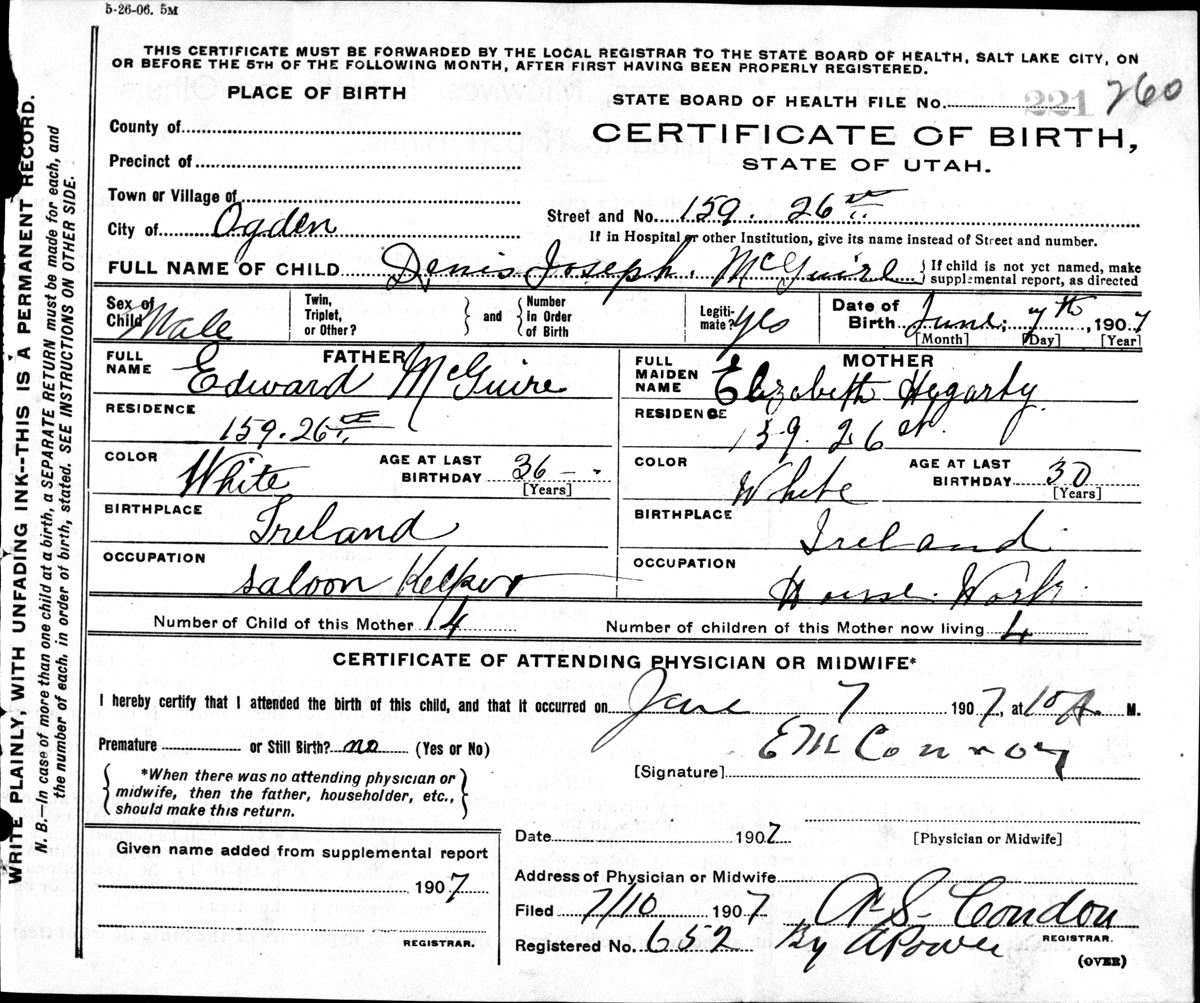 5-26-06. 5M
THIS CERTIFICATE MUST BE FORWARDED BY THE LOCAL REGISTRAR TO THE STATE BOARD OF HEALTH, SALT LAKE CITY, ON
OR BEFORE THE 5TH OF THE FOLLOWING MONTH, AFTER FIRST HAVING BEEN PROPERLY REGISTERED.
WRITE PLAINLY, WITH UNFADING INK--THIS IS A PERMANENT RECORD.
N. B.—In case of more than one child at a birth, a SEPARATE RETURN must be made for each, and
the number of each, in order of birth, stated. SEE INSTRUCTIONS ON OTHER SIDE.
PLACE OF BIRTH
STATE BOARD OF HEALTH FILE No. 221 260
CERTIFICATE OF BIRTH,
STATE OF UTAH.
County of
Precinct of
Town or Village of
City of Ogden
Street and No. 159. 26th
If in Hospital or other Institution, give its name instead of Street and number.
FULL NAME OF CHILD Denis Joseph McGuire { If child is not yet named, make
supplemental report, as directed
Sex of Child Male
Twin, Triplet, or Other? } and { Number in Order of Birth
Legiti-mate? Yes
Date of Birth June, 7th, 1907
[Month] [Day] [Year]
FATHER
FULL NAME Edward McGuire
RESIDENCE
159. 26th
COLOR White
AGE AT LAST BIRTHDAY 36
[Years]
BIRTHPLACE
Ireland
OCCUPATION
Saloon Keeper
MOTHER
FULL MAIDEN NAME Elizabeth Hegarty
RESIDENCE
159. 26 St.
COLOR White
AGE AT LAST BIRTHDAY 30
[Years]
BIRTHPLACE
Ireland
OCCUPATION
House Work
Number of Child of this Mother 4
Number of children of this Mother now living 4
CERTIFICATE OF ATTENDING PHYSICIAN OR MIDWIFE*
I hereby certify that I attended the birth of this child, and that it occurred on June 7 1907, at 10 A. M.
Premature or Still Birth? no (Yes or No)
[Signature] E M Conroy
*When there was no attending physician or
midwife, then the father, householder, etc.,
should make this return.
Date 1907
[Physician or Midwife]
Given name added from supplemental report
1907
REGISTRAR.
Address of Physician or Midwife
Filed 7/10 1907
A. S. Condon
REGISTRAR.
Registered No. 652
By A Power
(OVER)